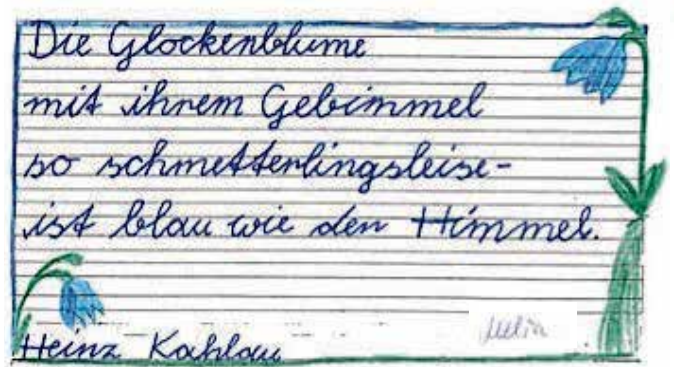 Die Glockenblume
mit ihrem Gebimmel
so schmetterlingsleise-
ist blau wie den Himmel.
Heinz Kahlau